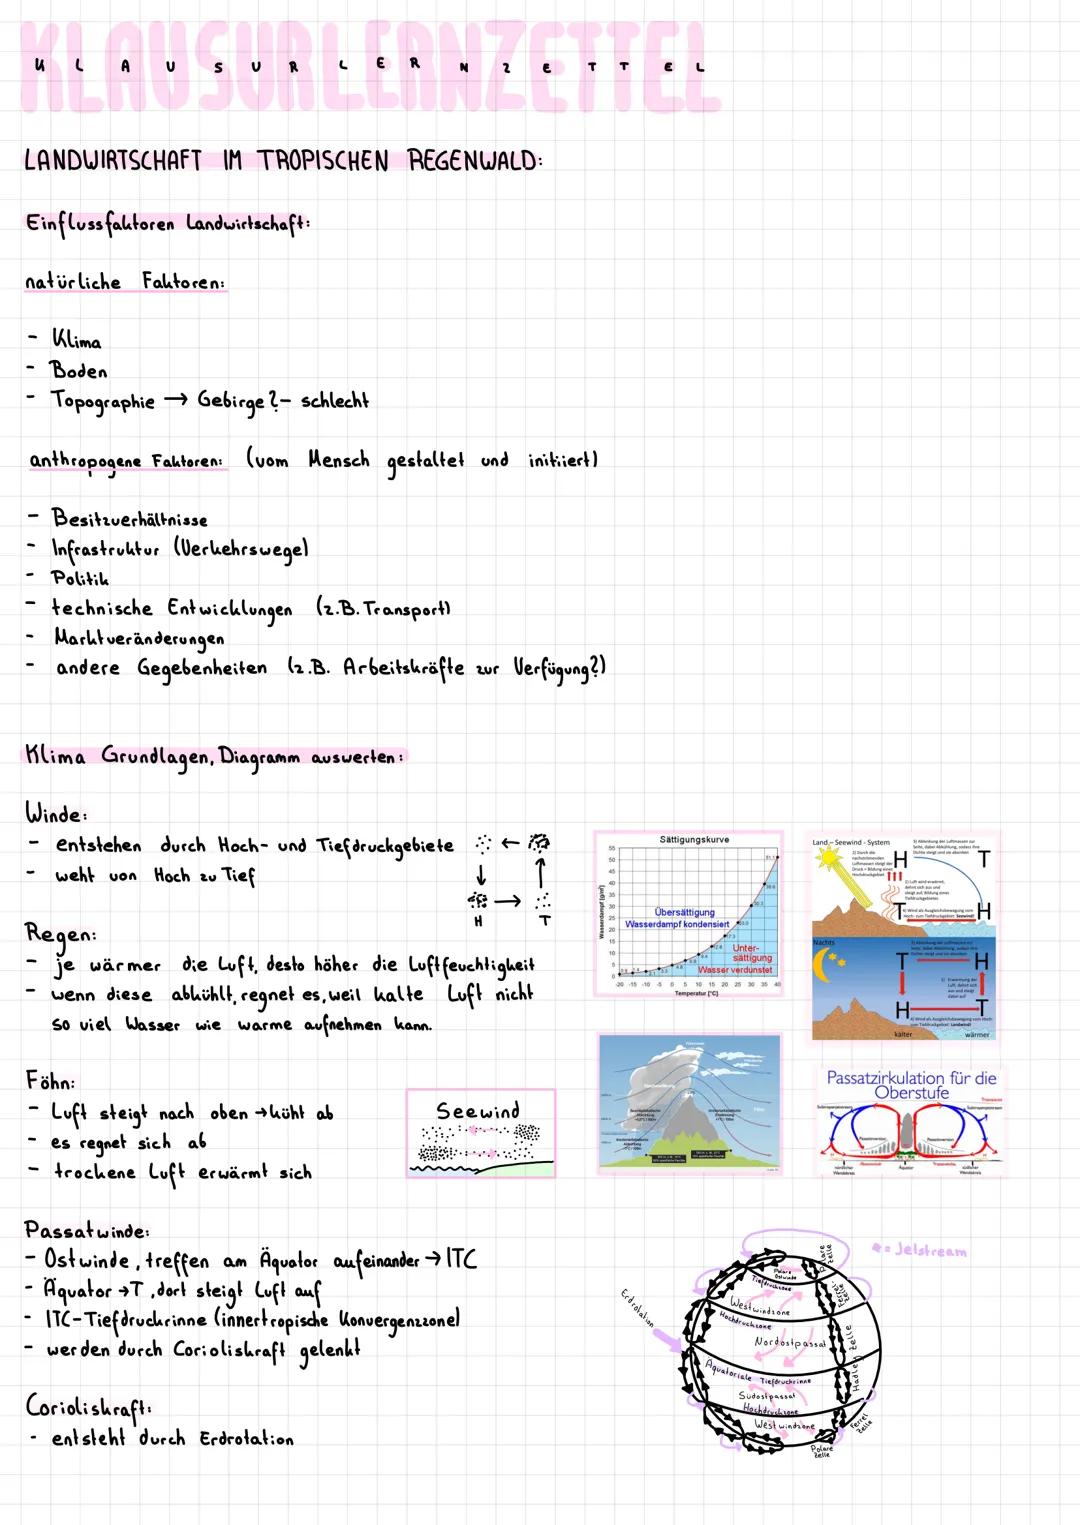 KLAUSURLERNZETTEL
KLAUSURLERNZETTEL
LANDWIRTSCHAFT IM TROPISCHEN REGENWALD:
Einflussfaktoren Landwirtschaft:
natürliche Faktoren:
- Klima
- Boden
- Topographie → Gebirge?- schlecht
anthropogene Faktoren: (vom Mensch gestaltet und initiiert)
- Besitzverhältnisse
- Infrastruktur (Verkehrswege)
- Politik
- technische Entwicklungen (z.B. Transport)
- Marktveränderungen
- andere Gegebenheiten (z.B. Arbeitskräfte zur Verfügung?)
Klima Grundlagen, Diagramm auswerten:
Winde:
- entstehen durch Hoch- und Tiefdruckgebiete
- weht von Hoch zu Tief
H T
Regen:
- je wärmer die Luft, desto höher die Luftfeuchtigkeit
- wenn diese abkühlt, regnet es, weil kalte Luft nicht
so viel Wasser wie warme aufnehmen kann.
Föhn:
- Luft steigt nach oben → küht ab
- es regnet sich ab
- trockene Luft erwärmt sich
Seewind
Passatwinde:
- Ostwinde, treffen am Äquator aufeinander → ITC
- Äquator → T, dort steigt Luft auf
- ITC-Tiefdruckrinne (innertropische Konvergenzzone)
- werden durch Corioliskraft gelenkt
Corioliskraft:
- entsteht durch Erdrotation
Sättigungskurve
Wasserdampf [g/m³]
55
50
45
40
35
30
25
20
15
10
5
0
Übersättigung
Wasserdampf kondensiert
Unter-
sättigung
Wasser verdunstet
-20 -15 -10 -5 0 5 10 15 20 25 30 35 40
Temperatur [°C]
Land – Seewind - System
H T
T H
Nachts
T H
H T
kälter wärmer
Passatzirkulation für die
Oberstufe
nördlicher
Wendekreis
Äquator
südlicher
Wendekreis
= Jetstream
Erdrotation
Polare
Ostwinde
Tiefdruckzone
Westwindzone
Hochdruckzone
Nordostpassat
Äquatoriale Tiefdruckrinne
Südostpassat
Hochdruckzone
Westwindzone
Polare
Zelle
Ferrel
Zelle
Hadley Zelle
Ferrel
Zelle
Polare
Zelle